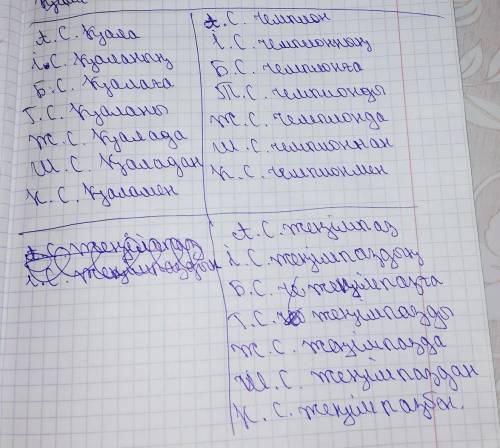 А.С. Қала
І.С. Қаланың
Б.С. Қалаға
Т.С. Қаланы
Ж.С. Қалада
Ш.С. Қаладан
К.С. Қаламен
А.С. чемпион
І.С. чемпионның
Б.С. чемпионға
Т.С. чемпионды
Ж.С. чемпионда
Ш.С. чемпионнан
К.С. чемпионмен
А.С. жеңімпаз
І.С. жеңімпаздың
А.С. жеңімпаз
І.С. жеңімпаздың
Б.С. жеңімпазға
Т.С. жеңімпазды
Ж.С. жеңімпазда
Ш.С. жеңімпаздан
К.С. жеңімпазбен.